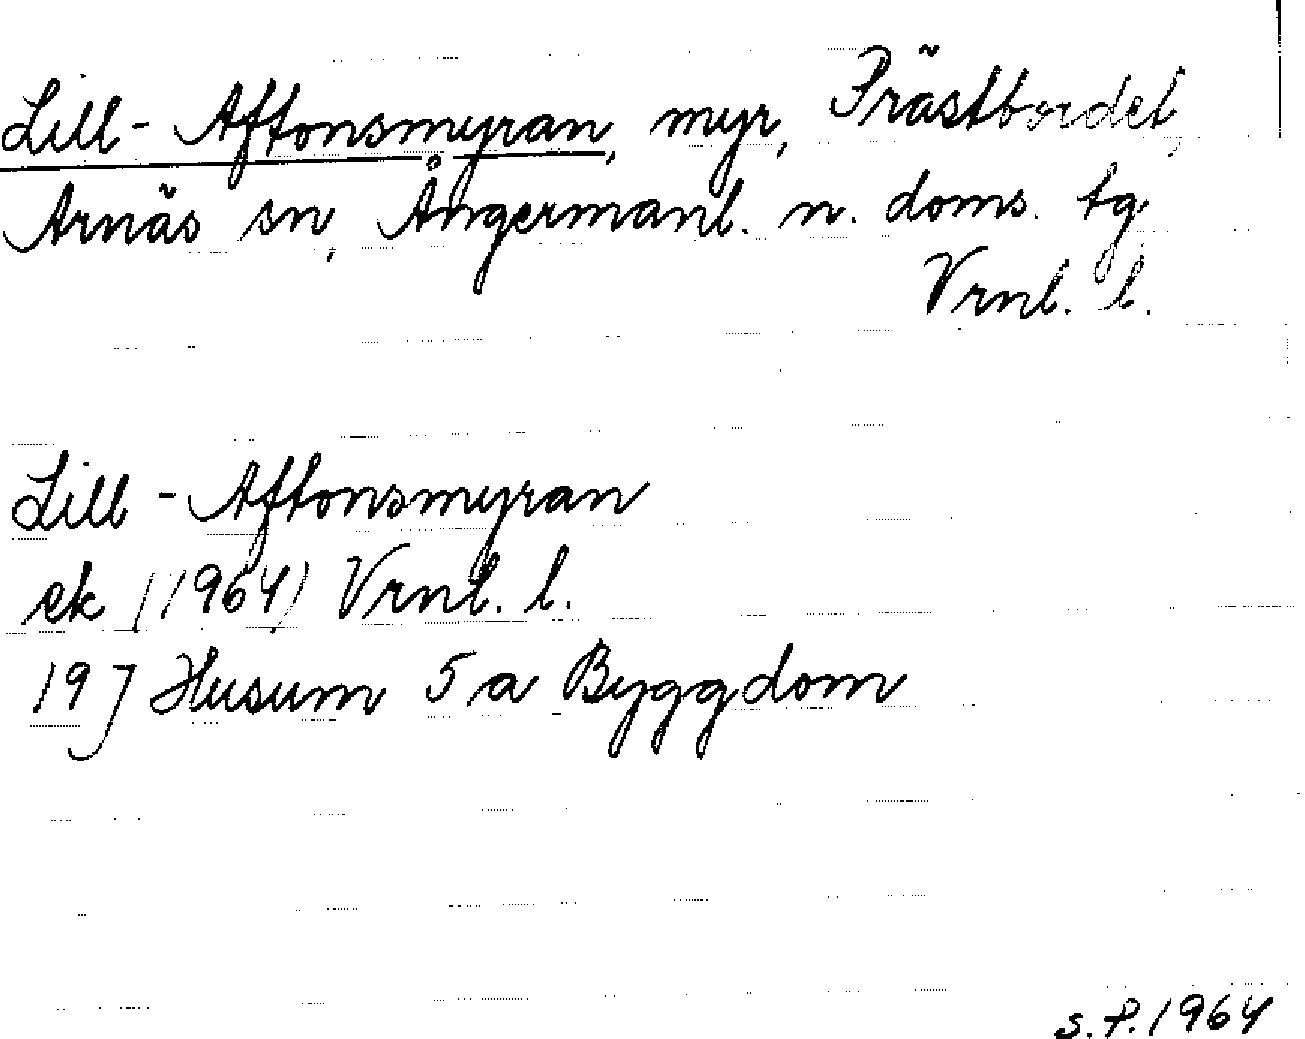 Lill-Aftonsmyran, myr, Prästbordet,
Arnäs sn, Ångermanl. n. doms. tg
Vrnl. l.
Lill-Aftonsmyran
ek (1964) Vrnl. l.
19J Husum 5 a Byggdom
S.P. 1964